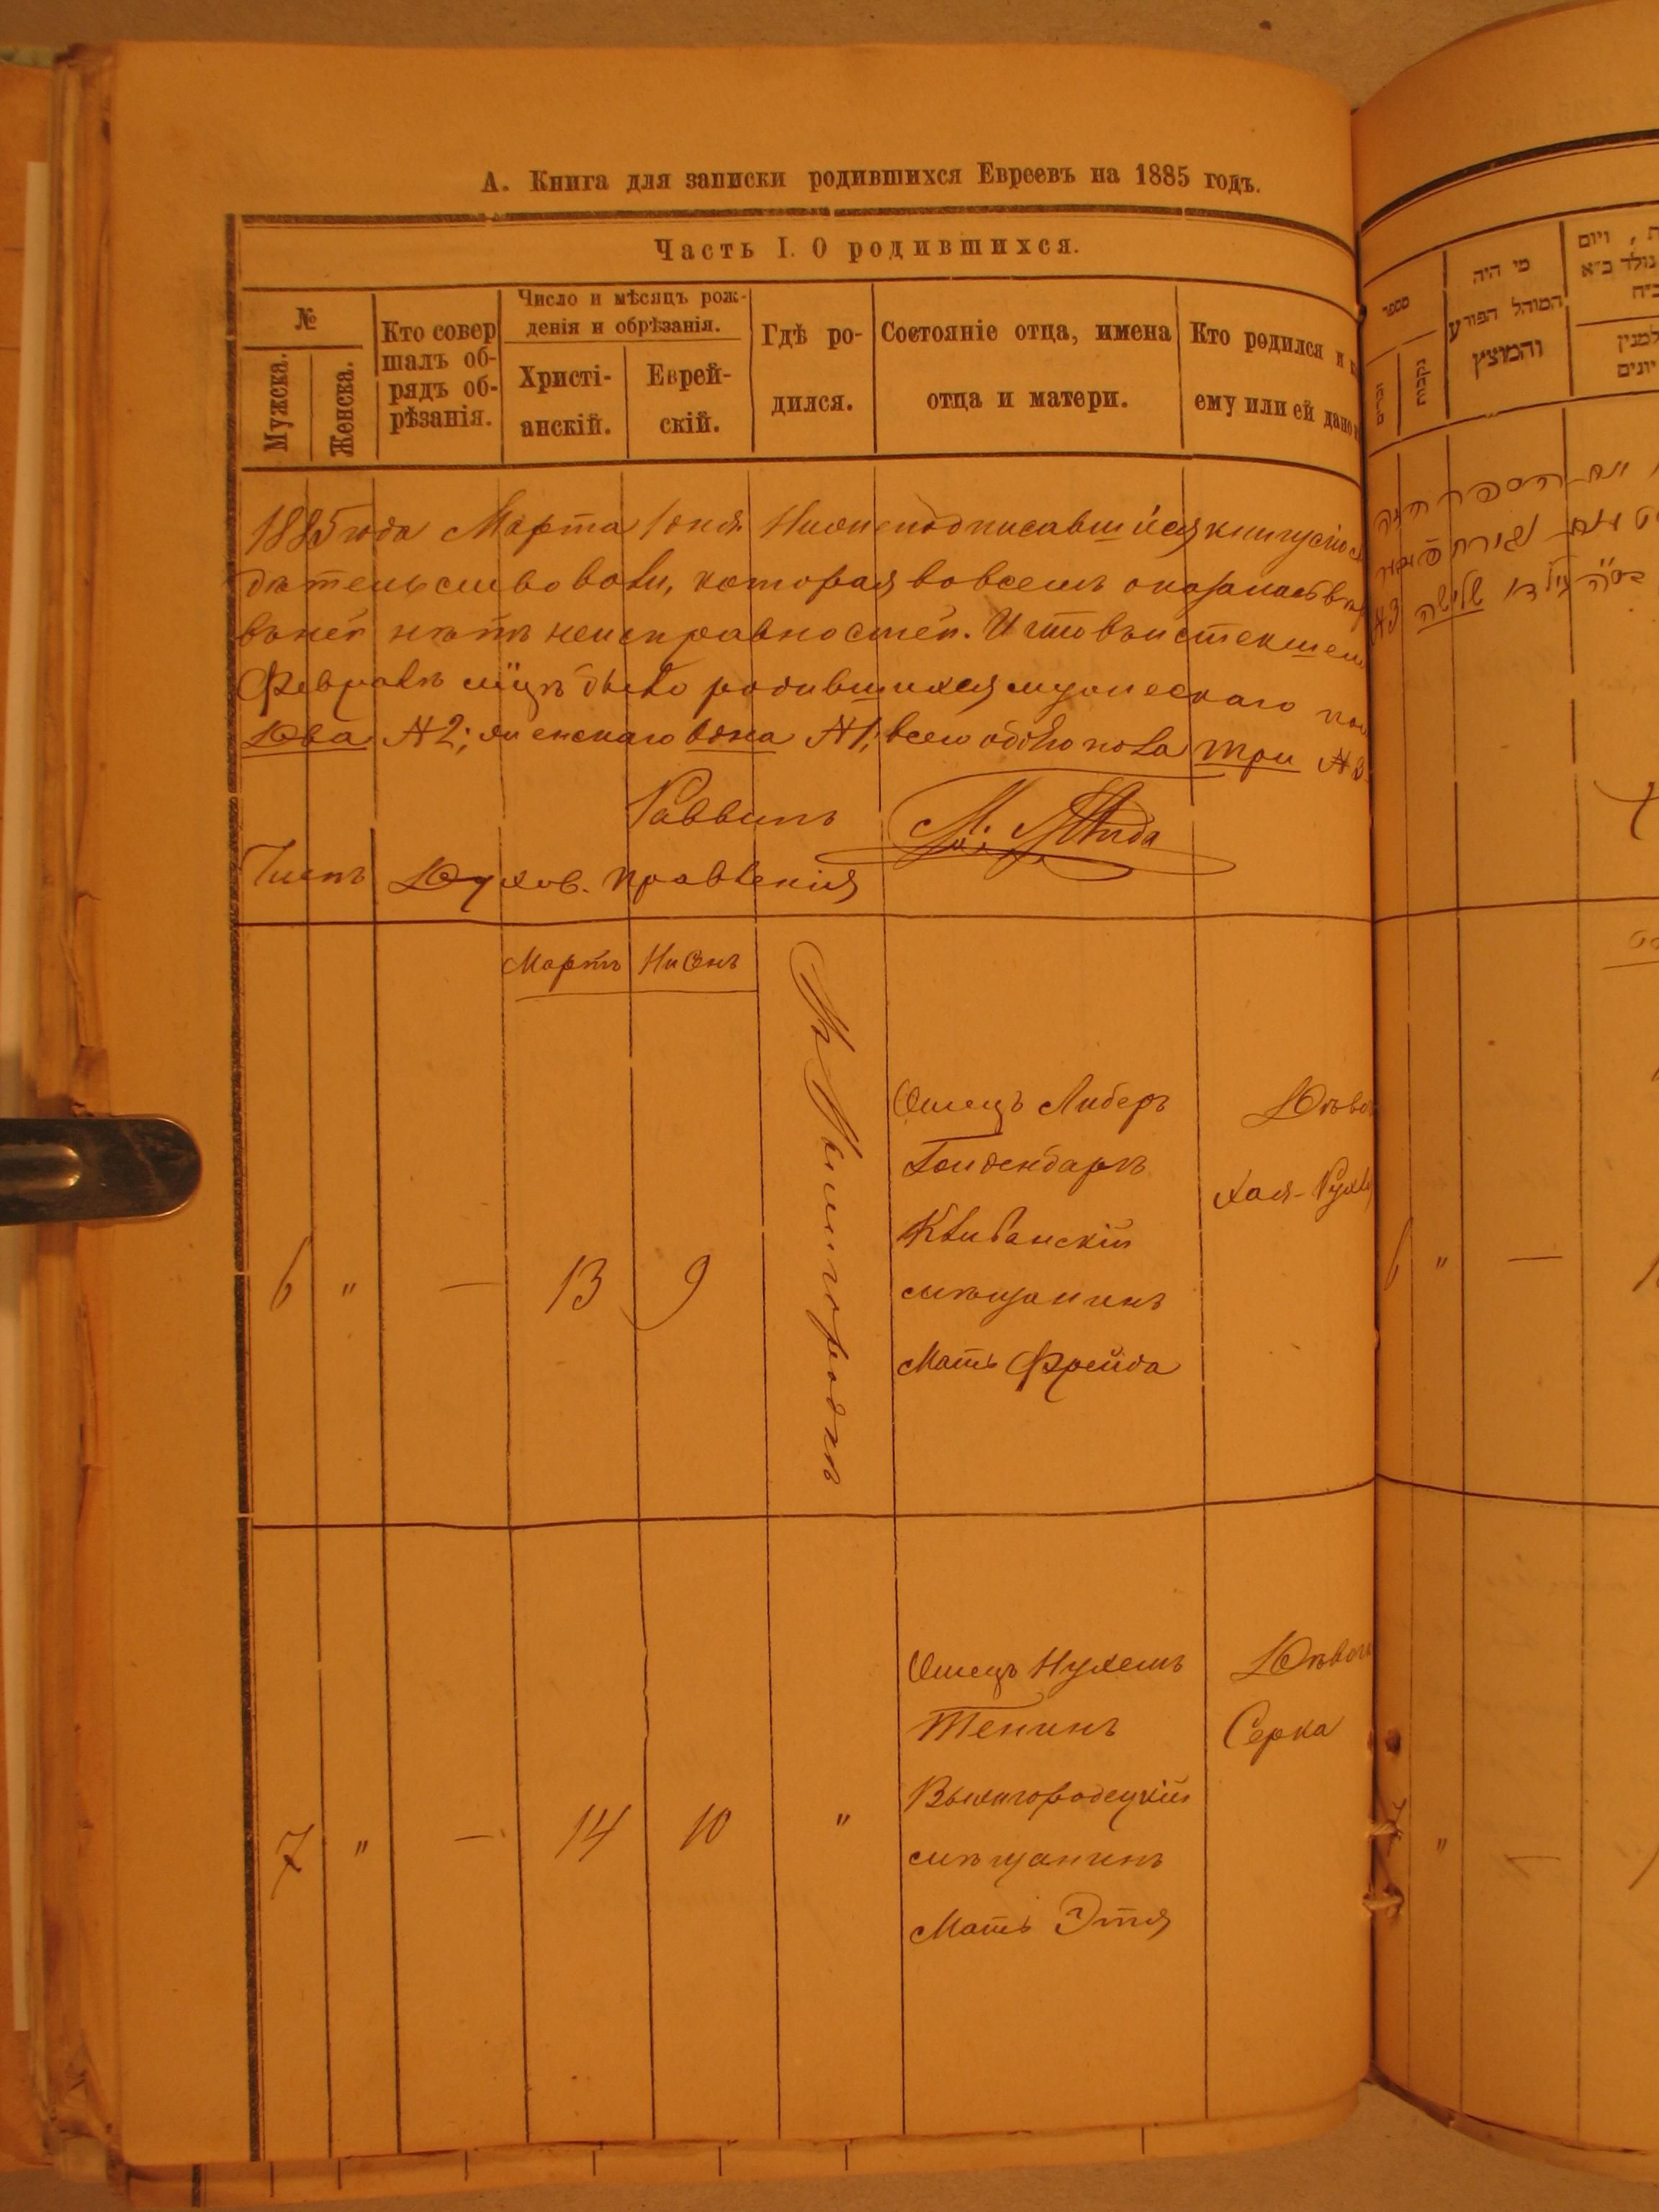 А. Книга для записки родившихся Евреевъ на 1885 годъ.
Часть I. О родившихся.
№
Мужска.
Женска.
Кто совер
шалъ об-
рядъ об-
рѣзанія.
Число и мѣсяцъ рож-
денія и обрѣзанія.
Христі-
анскій.
Еврей-
скій.
Гдѣ ро-
дился.
Состояніе отца, имена
отца и матери.
Кто родился и
ему или ей дано
1885 года Марта 1 дня. Нижеподписавшійся книгу сію
дательствовали, которая во всемъ оказалась
въ ней нѣтъ неисправностей. И что въ истекшемъ
Февралѣ м-цѣ было родившихся мужескаго
Два №2; женскаго одна №1; всего обоего пола три №3.
Раввинъ
Членъ Духов. Правленія
Мартъ Нисенъ
6 " — 13 9
Въ Вышгородкѣ
Отецъ Либеръ
Гольденбаргъ
Клибанскій
мѣщанинъ
Мать Фрейда
Хая-Рухля
7 " — 14 10 "
Отецъ Нухемъ
Тенинъ
Вышгородецкій
мѣщанинъ
Мать Этя
Серка
מספר
זכרים
נקבות
מי היה
המוהל הפורע
והמוצץ
ויום
6 " —
" —